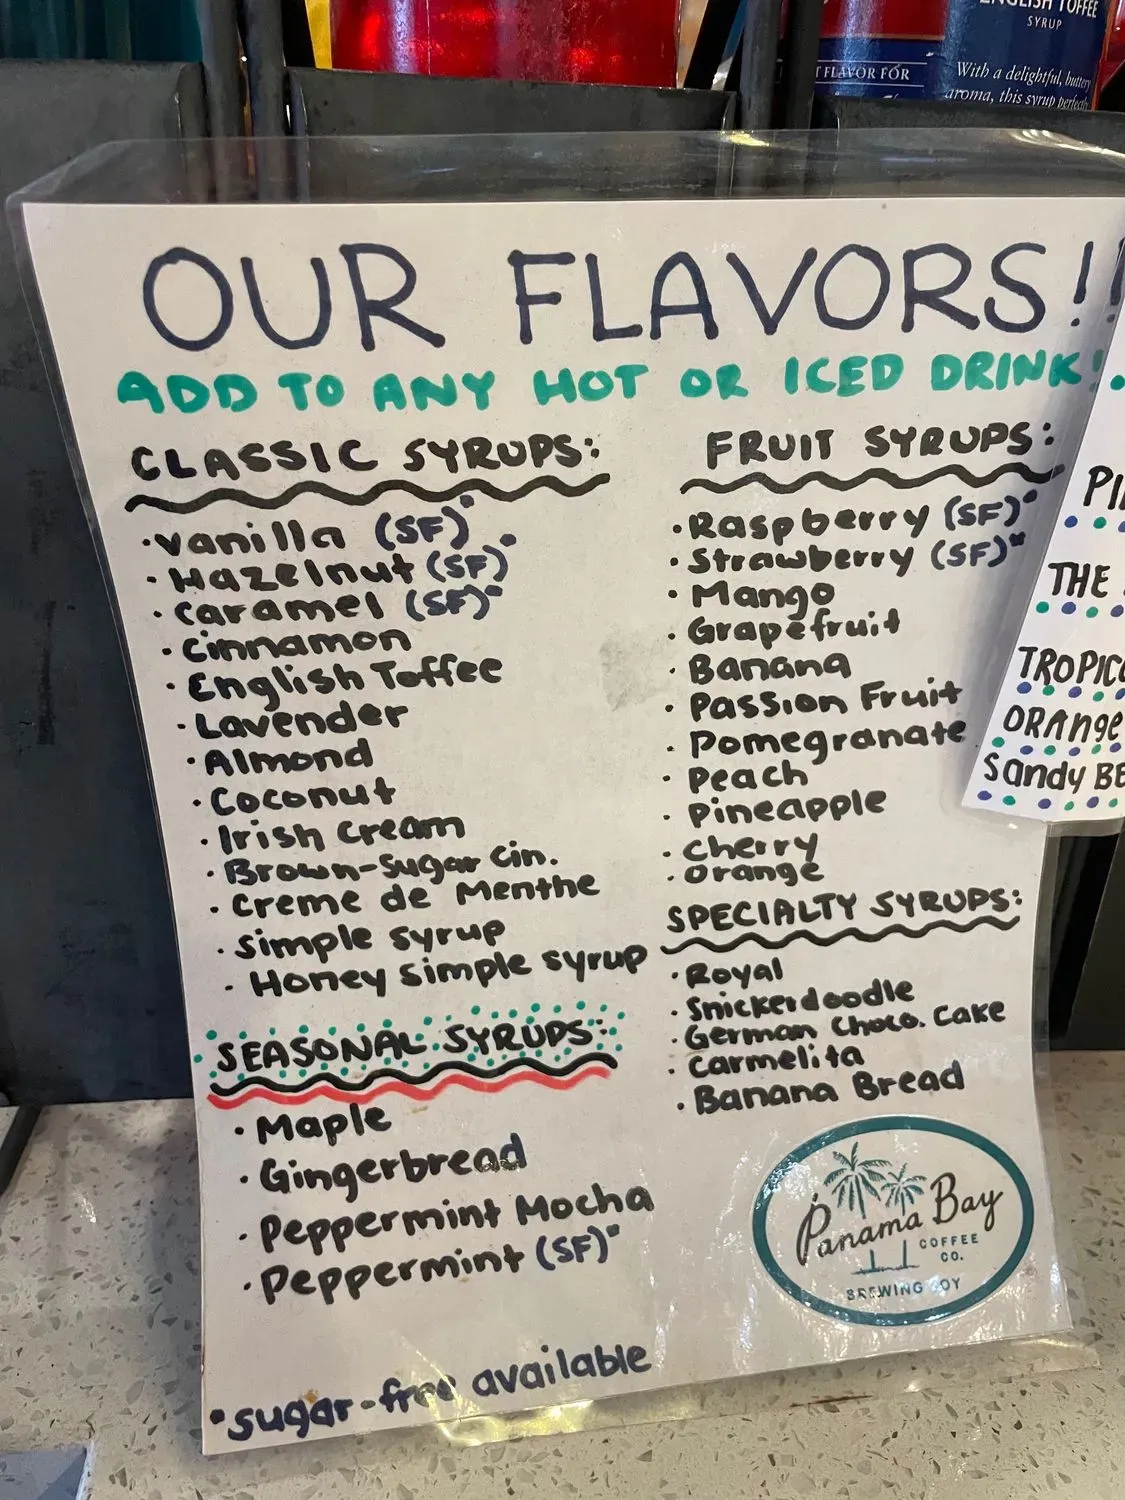 ENGLISH TOFFEE
SYRUP
FLAVOR FOR
With a delightful, buttery
aroma, this syrup perfectly
OUR FLAVORS!!
ADD TO ANY HOT OR ICED DRINK!
CLASSIC SYRUPS:
• Vanilla (SF)*
• Hazelnut (SF)*
• Caramel (SF)*
• Cinnamon
• English Toffee
• Lavender
• Almond
• Coconut
• Irish Cream
• Brown-Sugar Cin.
• Creme de Menthe
• Simple Syrup
• Honey Simple Syrup
SEASONAL SYRUPS:
• Maple
• Gingerbread
• Peppermint Mocha
• Peppermint (SF)*
*sugar-free available
FRUIT SYRUPS:
• Raspberry (SF)*
• Strawberry (SF)*
• Mango
• Grapefruit
• Banana
• Passion Fruit
• Pomegranate
• Peach
• Pineapple
• Cherry
• Orange
SPECIALTY SYRUPS:
• Royal
• Snickerdoodle
• German Choco. Cake
• Carmelita
• Banana Bread
Panama Bay
COFFEE
CO.
BREWING JOY
THE
ORANGE
Sandy